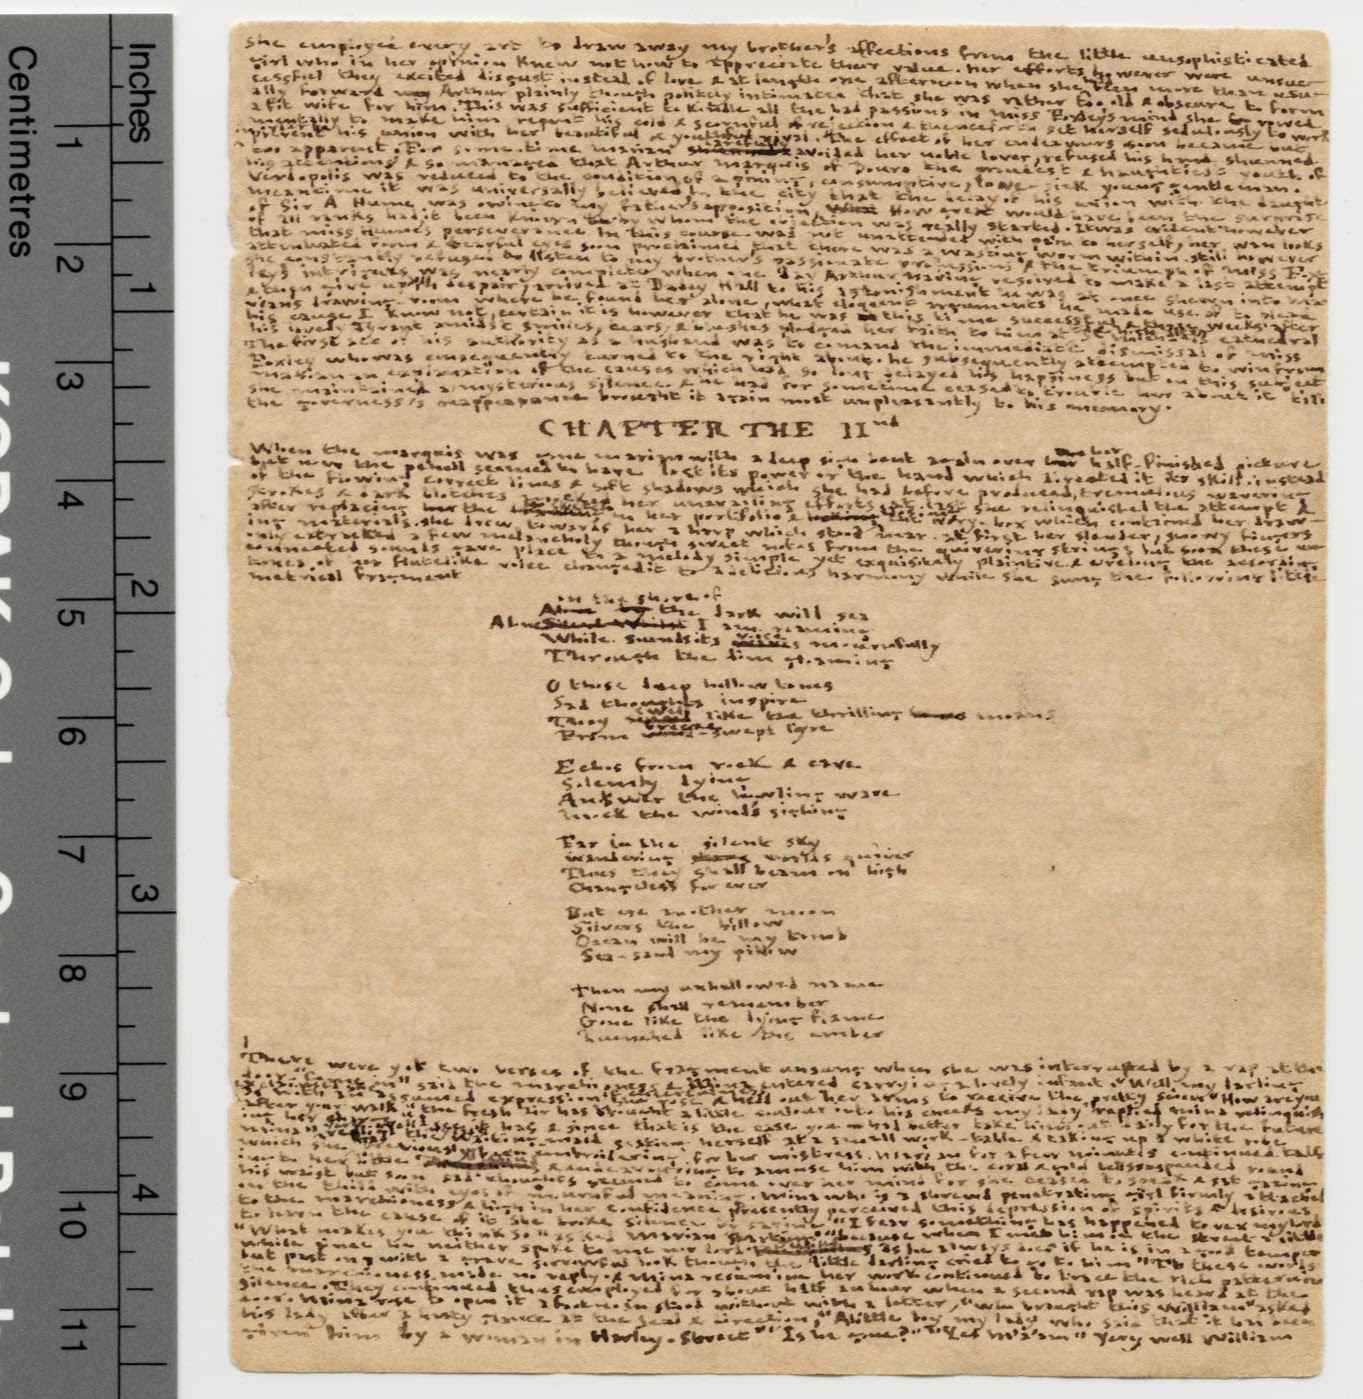 Inches
Centimetres
1
2
3
4
5
6
7
8
9
10
11
1
2
3
4
She employed every art to draw away my brother's affections from the little unsophisticated
girl who in her opinion knew not how to appreciate their value. Her efforts however were unsuc-
cessful they excited disgust instead of love & at length one afternoon when she been more than usu-
ally forward Arthur plainly though politely intimated that she was rather too old & obscure to form
a fit wife for him. This was sufficient to kindle all the bad passions in Miss Foxley's mind she vowed
mentally to make him repent his cold & scornful rejection & thenceforth set herself sedulously to work
his union with her beautiful & youthful rival. The effect of her endeavours soon became but
too apparent. For some time marian avoided her noble lover, refused his hand, shunned
his attentions & so managed that Arthur marquis of Douro the proudest & haughtiest youth of
Verdopolis was reduced to the condition of a pining, consumptive, love-sick young gentleman.
meantime it was universally believed in the city that the delay of his union with the daughter
of Sir A Hume was owing to my father's opposition, How great would have been the surprise
of all ranks had it been known by whom the objection was really started. It was evident however
that miss Hume's perseverance in this course was not unattended with pain to herself, her wan looks
attenuated form & tearful eyes soon proclaimed that there was a wasting worm within. still however
she constantly refused to listen to my brother's passionate & the triumph of Miss Fox-
ley's intrigues was nearly complete when one day Arthur having resolved to make a last attempt
& then give up despair, arrived at Badey Hall to his astonishment he was at once shewn into ma-
rian's drawing-room where he found her alone, what eloquent arguments he made use of to plead
his cause I know not, certain it is however that he was this time successful & three weeks after
his lovely Tyrant amidst smiles, tears, & blushes plighted her faith to him at cathedral
The first act of his authority as a husband was to comand the immediate dismissal of Miss
Foxley who was consequently turned to the right about. he subsequently attempted to win from
marian an explanation of the causes which had so long delayed his happiness but on this subject
she maintained a mysterious silence. & he had for sometime ceased to trouble her about it till
the governess's reappearance brought it again most unpleasantly to his memory.
CHAPTER THE IInd
When the marquis was gone marian with a deep sigh bent again over her half-finished picture
but now the pencil seemed to have lost its power or the hand which directed it its skill. instead
of the flowing correct lines & soft shadows which she had before produced, tremulous wavering
strokes & dark blotches her unavailing efforts at last she relinquished the attempt &
after replacing the in her portfolio & the ivory-box which contained her draw-
ing materials. she drew towards her a harp which stood near. at first her slender, snowy fingers
only extracted a few melancholy though sweet notes from the quivering strings but soon these un-
connected sounds gave place to a melody simple yet exquisitely plaintive & erelong the according
tones of her flutelike voice changed it to a delicious harmony while she sung the following little
metrical fragment
on the shore of
the dark wild sea
Alone I am roaming
While sounds its voice mournfully
Through the dim gloaming
O those deep hollow tones
Sad thoughts inspire
They swell like the thrilling moans
From breeze-swept lyre
Echos from rock & cave
Solemnly dying
Answer the howling wave
mock the wind's sighing
Far in the silent sky
wandering worlds quiver
Thus they shall beam on high
Changeless for ever
But ere another moon
Silvers the billow
Ocean will be my tomb
Sea-sand my pillow
Then my unhallowed name
None shall remember
Gone like the dying flame
Quenched like the ember
There were yet two verses of the fragment unsung when she was interrupted by a rap at the
door said the marchioness & Mina entered carrying a lovely infant. "Well my darling
with an assumed expression & held out her arms to receive the pretty "How are you
after your walk" "the fresh air has brought a little colour into his cheeks my lady" replied mina relinquish-
ing her has & since that is the case you had better take him out daily for the future
mina" waiting-maid seating herself at a small work-table & taking up a white robe
which she embroidering for her mistress. Marian for a few minutes continued talk-
ing to her little & endeavouring to amuse him with the coral & gold bells suspended round
his waist but soon sad thoughts seemed to come over her mind for she ceased to speak & sat gazing
on the child with eyes of mournful meaning. Mina who is a shrewd penetrating girl firmly attached
to the marchioness & high in her confidence presently perceived this depression of spirits & desirous
to learn the cause of it she broke silence by saying "I fear something has happened to vex my lord
"What makes you think so" asked Marian "because when I met him in the street a little
while since he neither spoke to me nor lord as he always does if he is in a good temper
but past on with a grave sorrowful look though the little darling cried to go to him" To these words
the marchioness made no reply & Mina resuming her work continued to trace the rich pattern in
silence. They continued thus employed for about half an hour when a second rap was heard at the
door. Mina rose to open it a footman stood without with a letter, "who brought this William" asked
his lady after a hasty glance at the seal & direction, "A little boy my lady who said that it had been
given him by a woman in Harley-Street" "Is he gone?" "Yes m'a'am" Very well William